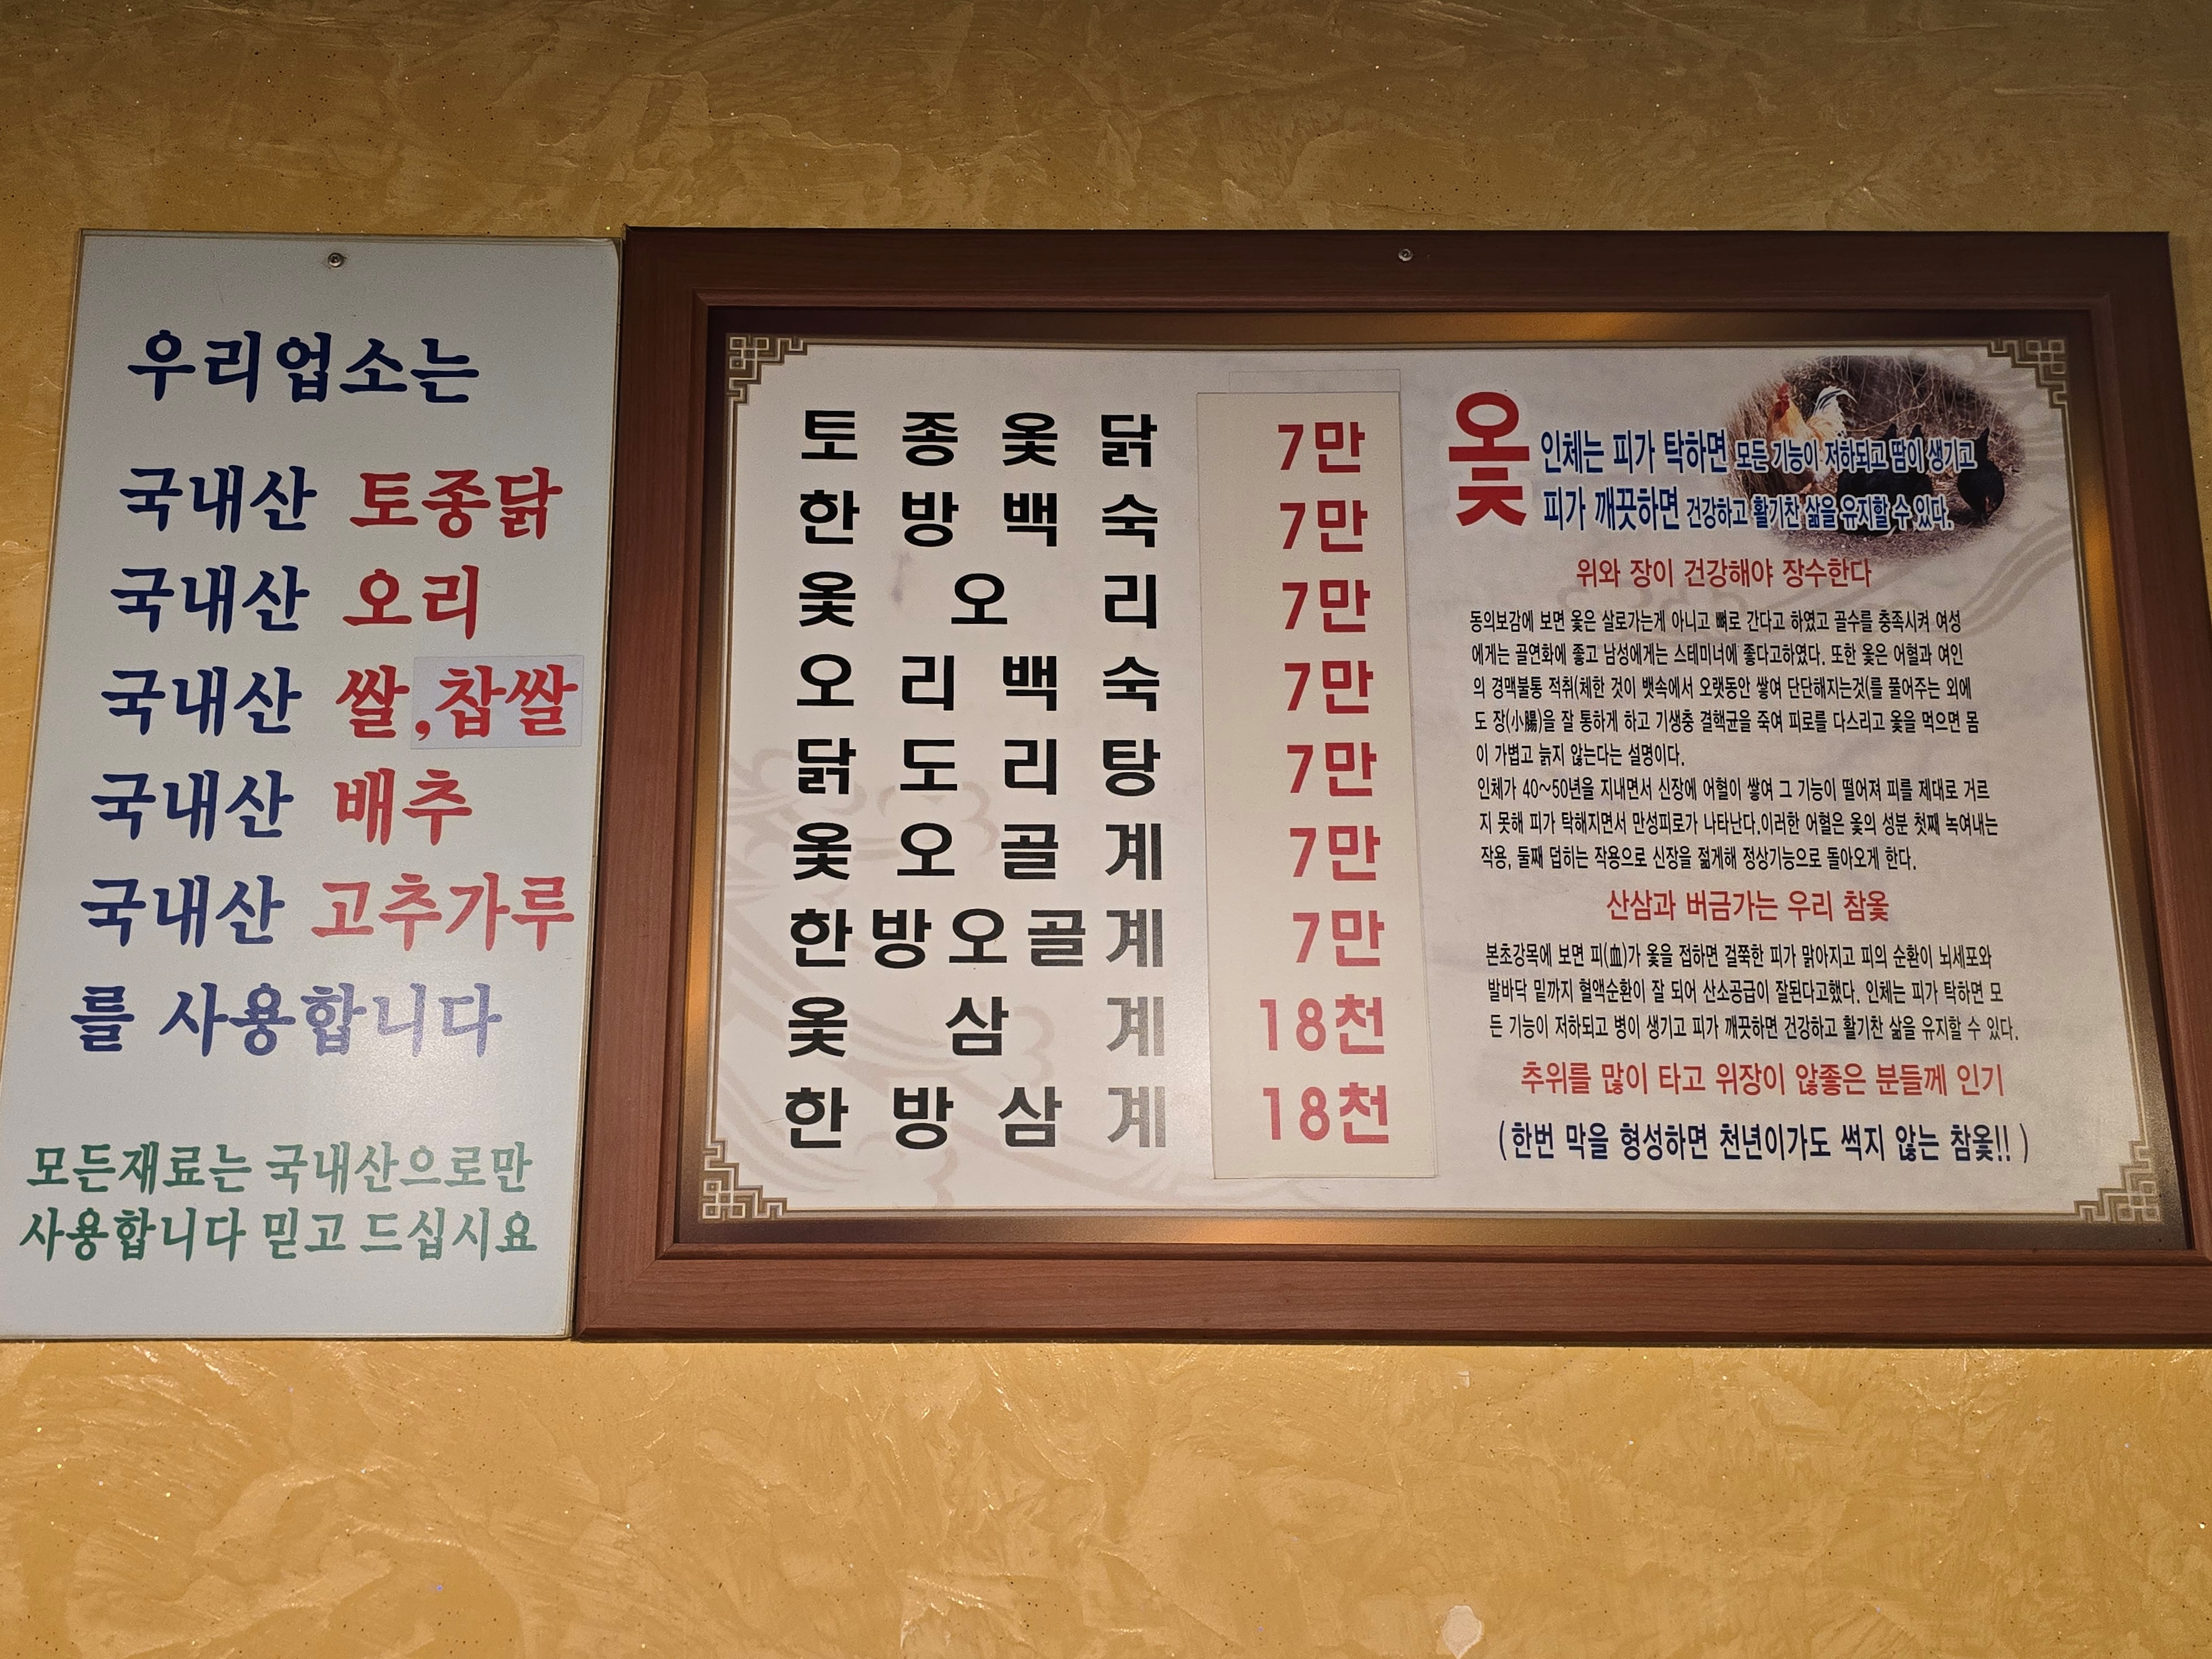 우리업소는
국내산 토종닭
국내산 오리
국내산 쌀,찹쌀
국내산 배추
국내산 고추가루
를 사용합니다
모든재료는 국내산으로만
사용합니다 믿고 드십시요
토종옻닭 7만
한방백숙 7만
옻오리 7만
오리백숙 7만
닭도리탕 7만
옻오골계 7만
한방오골계 7만
옻삼계 18천
한방삼계 18천
옻
인체는 피가 탁하면 모든 기능이 저하되고 땀이 생기고
피가 깨끗하면 건강하고 활기찬 삶을 유지할 수 있다.
위와 장이 건강해야 장수한다
동의보감에 보면 옻은 살로가는게 아니고 뼈로 간다고 하였고 골수를 충족시켜 여성
에게는 골연화에 좋고 남성에게는 스테미너에 좋다고하였다. 또한 옻은 어혈과 여인
의 경맥불통 적취(체한 것이 뱃속에서 오랫동안 쌓여 단단해지는것(를 풀어주는 외에
도 장(小腸)을 잘 통하게 하고 기생충 결핵균을 죽여 피로를 다스리고 옻을 먹으면 몸
이 가볍고 늙지 않는다는 설명이다.
인체가 40~50년을 지내면서 신장에 어혈이 쌓여 그 기능이 떨어져 피를 제대로 거르
지 못해 피가 탁해지면서 만성피로가 나타난다.이러한 어혈은 옻의 성분 첫째 녹여내는
작용, 둘째 덥히는 작용으로 신장을 젊게해 정상기능으로 돌아오게 한다.
산삼과 버금가는 우리 참옻
본초강목에 보면 피(血)가 옻을 접하면 걸쭉한 피가 맑아지고 피의 순환이 뇌세포와
발바닥 밑까지 혈액순환이 잘 되어 산소공급이 잘된다고했다. 인체는 피가 탁하면 모
든 기능이 저하되고 병이 생기고 피가 깨끗하면 건강하고 활기찬 삶을 유지할 수 있다.
추위를 많이 타고 위장이 않좋은 분들께 인기
(한번 막을 형성하면 천년이가도 썩지 않는 참옻!!)